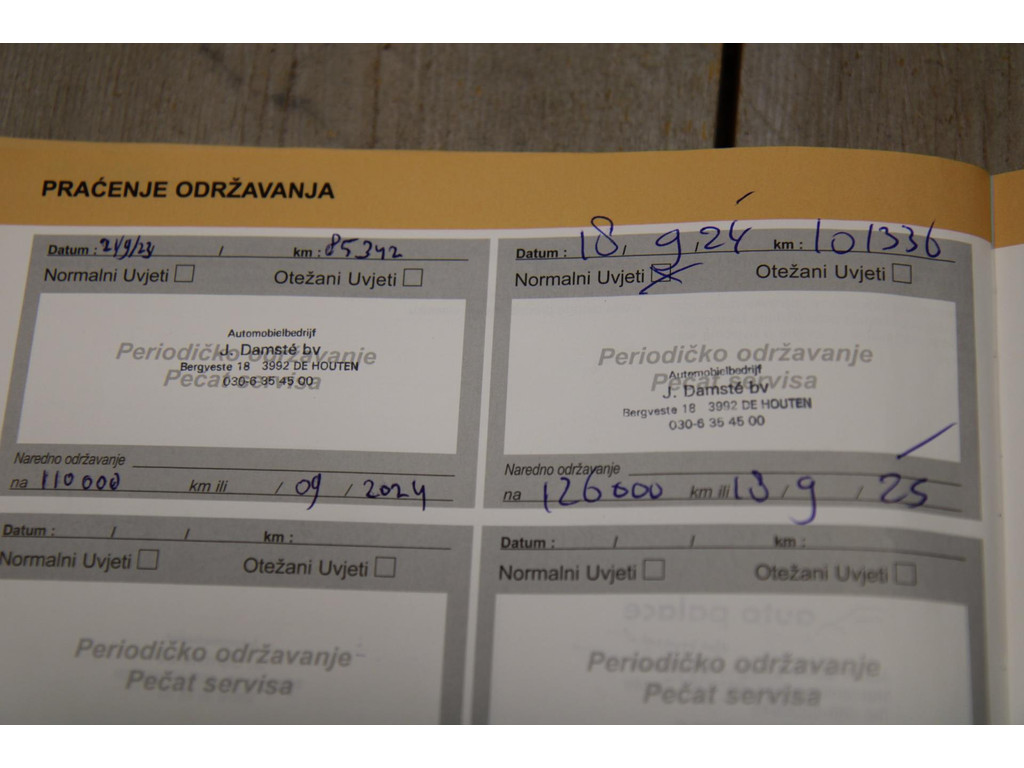 PRAĆENJE ODRŽAVANJA
Datum : 21/9/23 / km : 85342
Normalni Uvjeti Otežani Uvjeti
Periodičko održavanje
Pečat servisa
Automobielbedrijf
J. Damsté bv
Bergveste 18 3992 DE HOUTEN
030-6 35 45 00
Naredno održavanje
na 110000 km ili / 09 / 2024
Datum : 18, 9, 24 km : 101336
Normalni Uvjeti Otežani Uvjeti
Periodičko održavanje
Pečat servisa
Automobielbedrijf
J. Damsté bv
Bergveste 18 3992 DE HOUTEN
030-6 35 45 00
Naredno održavanje
na 126000 km ili 18 / 9 / 25
Datum : / / km :
Normalni Uvjeti Otežani Uvjeti
Periodičko održavanje
Pečat servisa
Datum : / / km :
Normalni Uvjeti Otežani Uvjeti
Periodičko održavanje
Pečat servisa